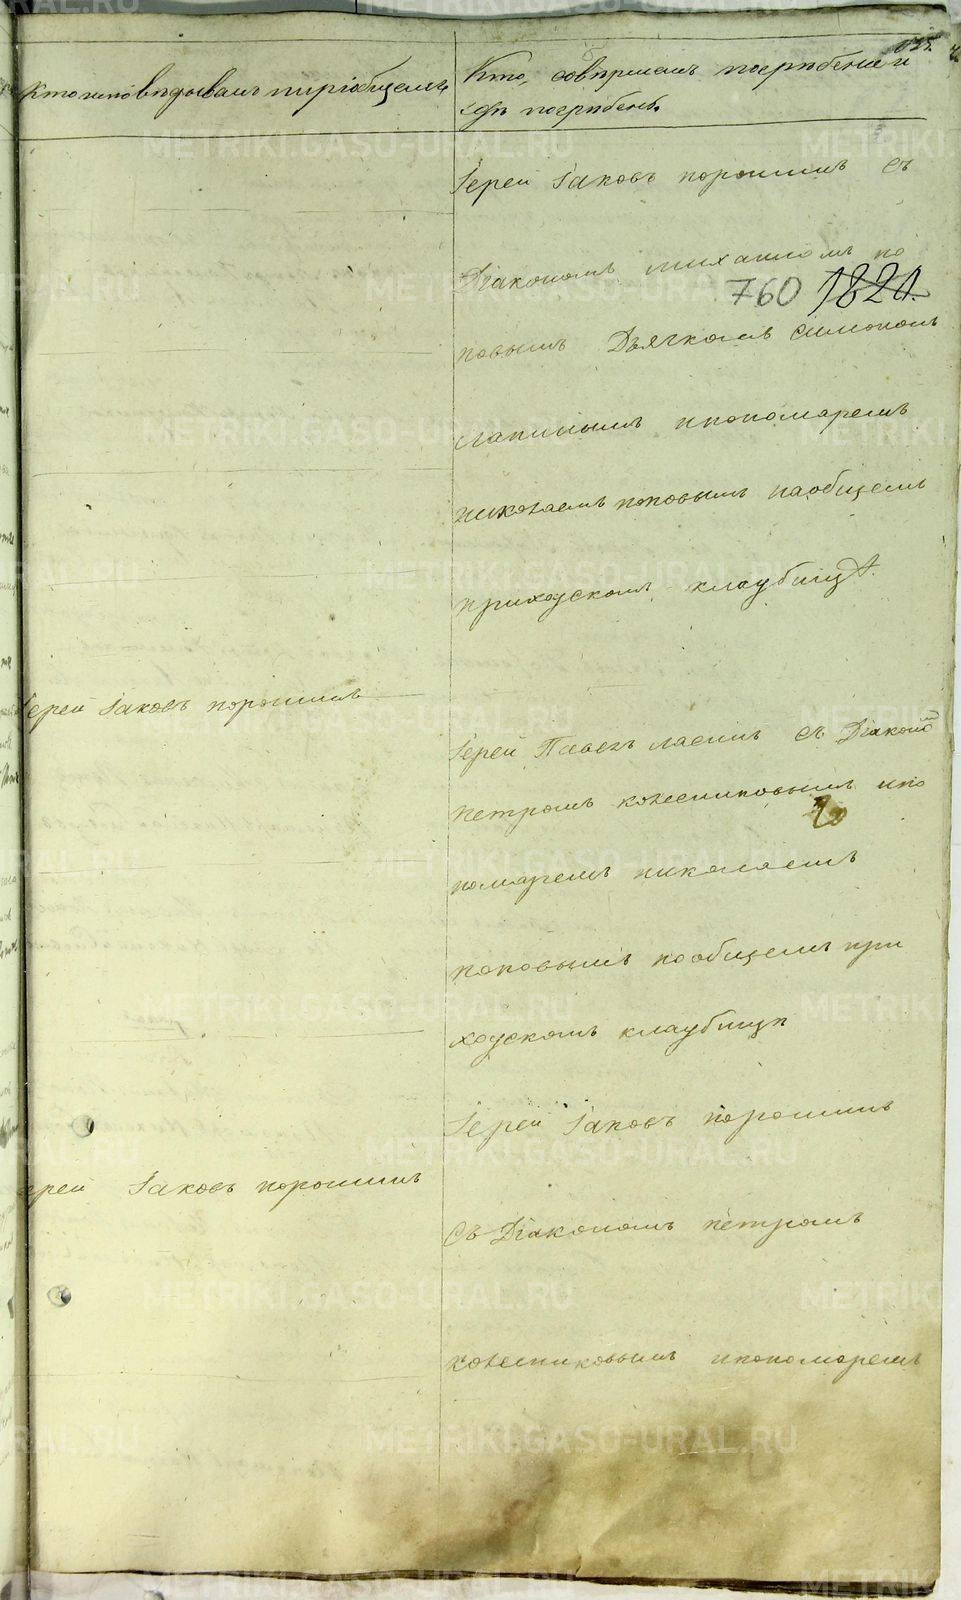 Кто исповѣдывалъ и пріобщалъ
Кто совершалъ погребеніе и
гдѣ погребены
Іерей Іаковъ порошинъ съ
Діакономъ михаиломъ по
760 1820.
повымъ Дьячкомъ симономъ
лапинымъ ипономаремъ
николаемъ поповымъ наобщемъ
приходскомъ кладбищѣ.
Іерей Іаковъ порошинъ
Іерей Павелъ ласинъ съ Діаконом
петромъ колесниковымъ ипо
номаремъ николаемъ
поповымъ наобщемъ при
ходскомъ кладбищѣ
Іерей Іаковъ порошинъ
ерей Іаковъ порошинъ
съ Діакономъ петромъ
колесниковымъ ипономаремъ
METRIKI.GASO-URAL.RU